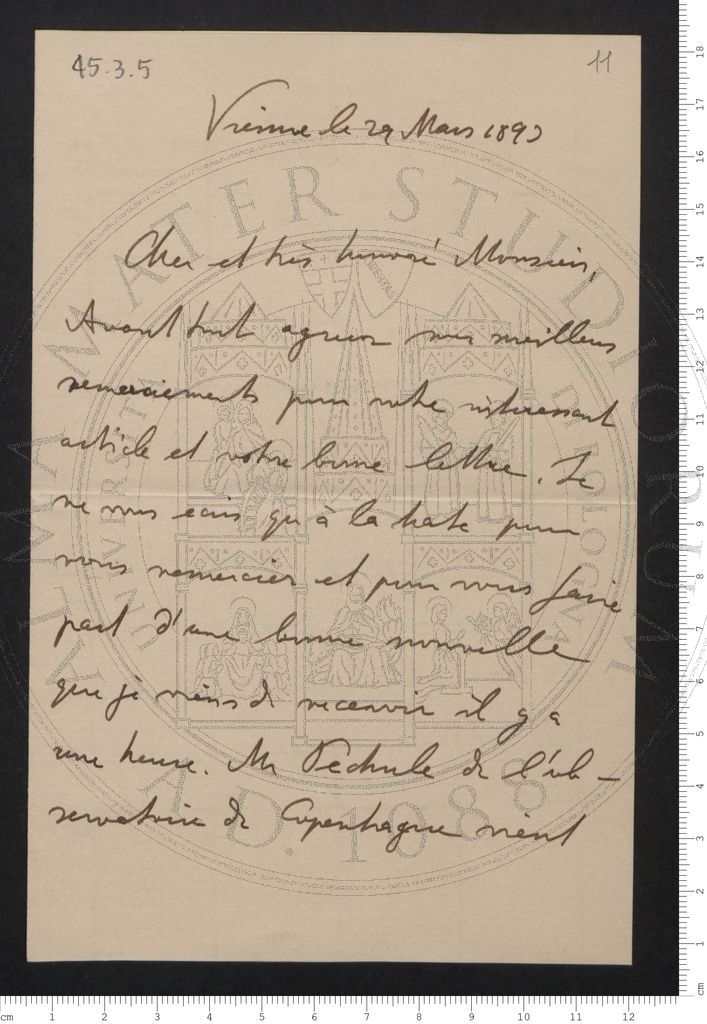 45.3.5
11
Vienne le 29 Mars 1892
Cher et très honoré Monsieur,
Avant tout agréez mes meilleurs
remerciements pour votre intéressant
article et votre bonne lettre. Je
ne vous écris qu'à la hate pour
vous remercier et pour vous faire
part d'une bonne nouvelle
que je viens de recevoir il y a
une heure. Mr Pechule de l'ob-
servatoire de Copenhague vient
ALMA MATER STUDIORUM
A.D. 1088